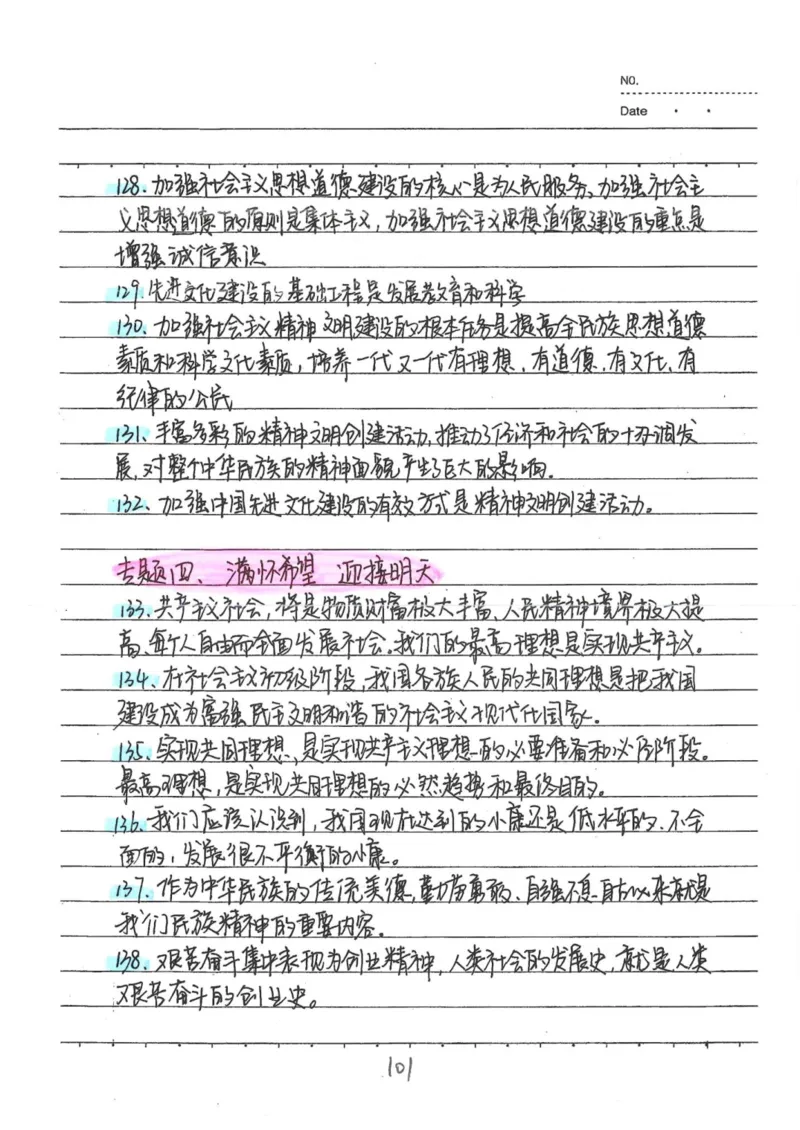 NO.
Date
128.加强社会主义思想道德建设的核心是为人民服务、加强社会主
义思想道德的原则是集体主义,加强社会主义思想道德建设的重点是
增强诚信意识
129.先进文化建设的基础工程是发展教育和科学
130.加强社会主义精神文明建设的根本任务是提高全民族思想道德
素质和科学文化素质,培养一代又一代有理想、有道德、有文化、有
纪律的公民
131、丰富多彩的精神文明创建活动,推动了经济和社会的协调发
展,对整个中华民族的精神面貌产生了巨大的影响.
132、加强中国先进文化建设的有效方式是精神文明创建活动。
专题四、满怀希望 迎接明天
133.共产主义社会,将是物质财富极大丰富、人民精神境界极大提
高、每个人自由而全面发展社会.我们的最高理想是实现共产主义。
134、在社会主义初级阶段,我国各族人民的共同理想是把我国
建设成为富强民主文明和谐的社会主义现代化国家.
135.实现共同理想,是实现共产主义理想的必要准备和必经阶段。
最高理想,是实现共同理想的必然趋势和最终目的。
136.我们应该认识到,我国现在达到的小康还是低水平的、不全
面的,发展很不平衡的小康。
137.作为中华民族的传统美德,勤劳勇敢、自强不息自古以来就是
我们民族精神的重要内容。
138.艰苦奋斗集中表现为创业精神,人类社会的发展史,就是人类
艰苦奋斗的创业史。
101